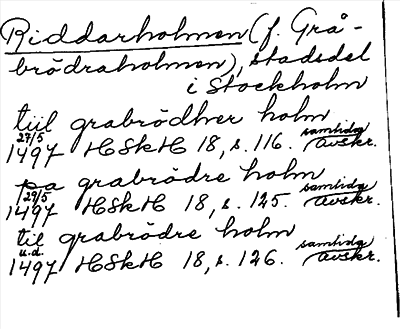 Riddarholmen (f. Grå-
brödraholmen), stadsdel
i Stockholm
tiil grabrödher holm
29/5
1497 HSkH 18, s. 116. samtida avskr.
pa grabrödre holm
29/5
1497 HSkH 18, s. 125. samtida avskr.
til grabrödre holm
u.d.
1497 HSkH 18, s. 126. samtida avskr.